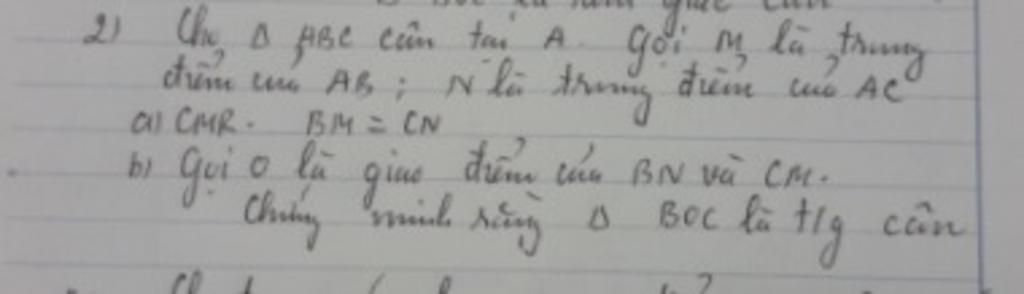 2) Cho Δ ABC cân tại A. Gọi M là trung
điểm của AB ; N là trung điểm của AC
a) CMR. BM = CN
b) Gọi O là giao điểm của BN và CM.
Chứng minh rằng Δ BOC là t/g cân